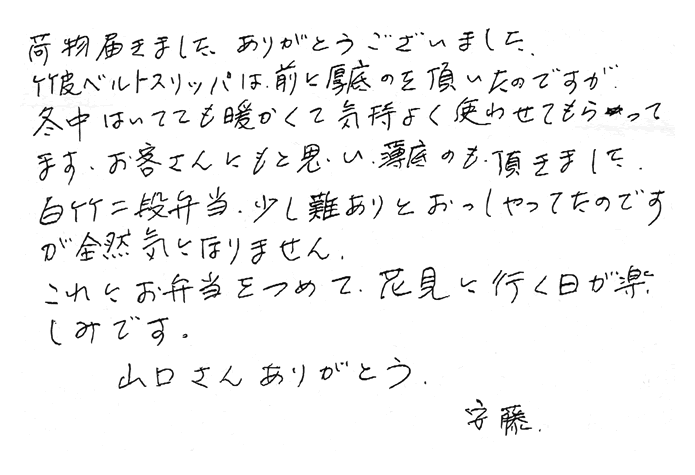 荷物届きました、ありがとうございました。
竹皮ベルトスリッパは、前に厚底のを頂いたのですが、
冬中はいてても暖かくて気持よく使わせてもらってて
ます、お客さんにもと思い、薄底のも、頂きました。
白竹二段弁当、少し難ありとおっしゃってたのです
が全然気になりません。
これにお弁当をつめて、花見に行く日が楽
しみです。
山口さんありがとう。
安藤.